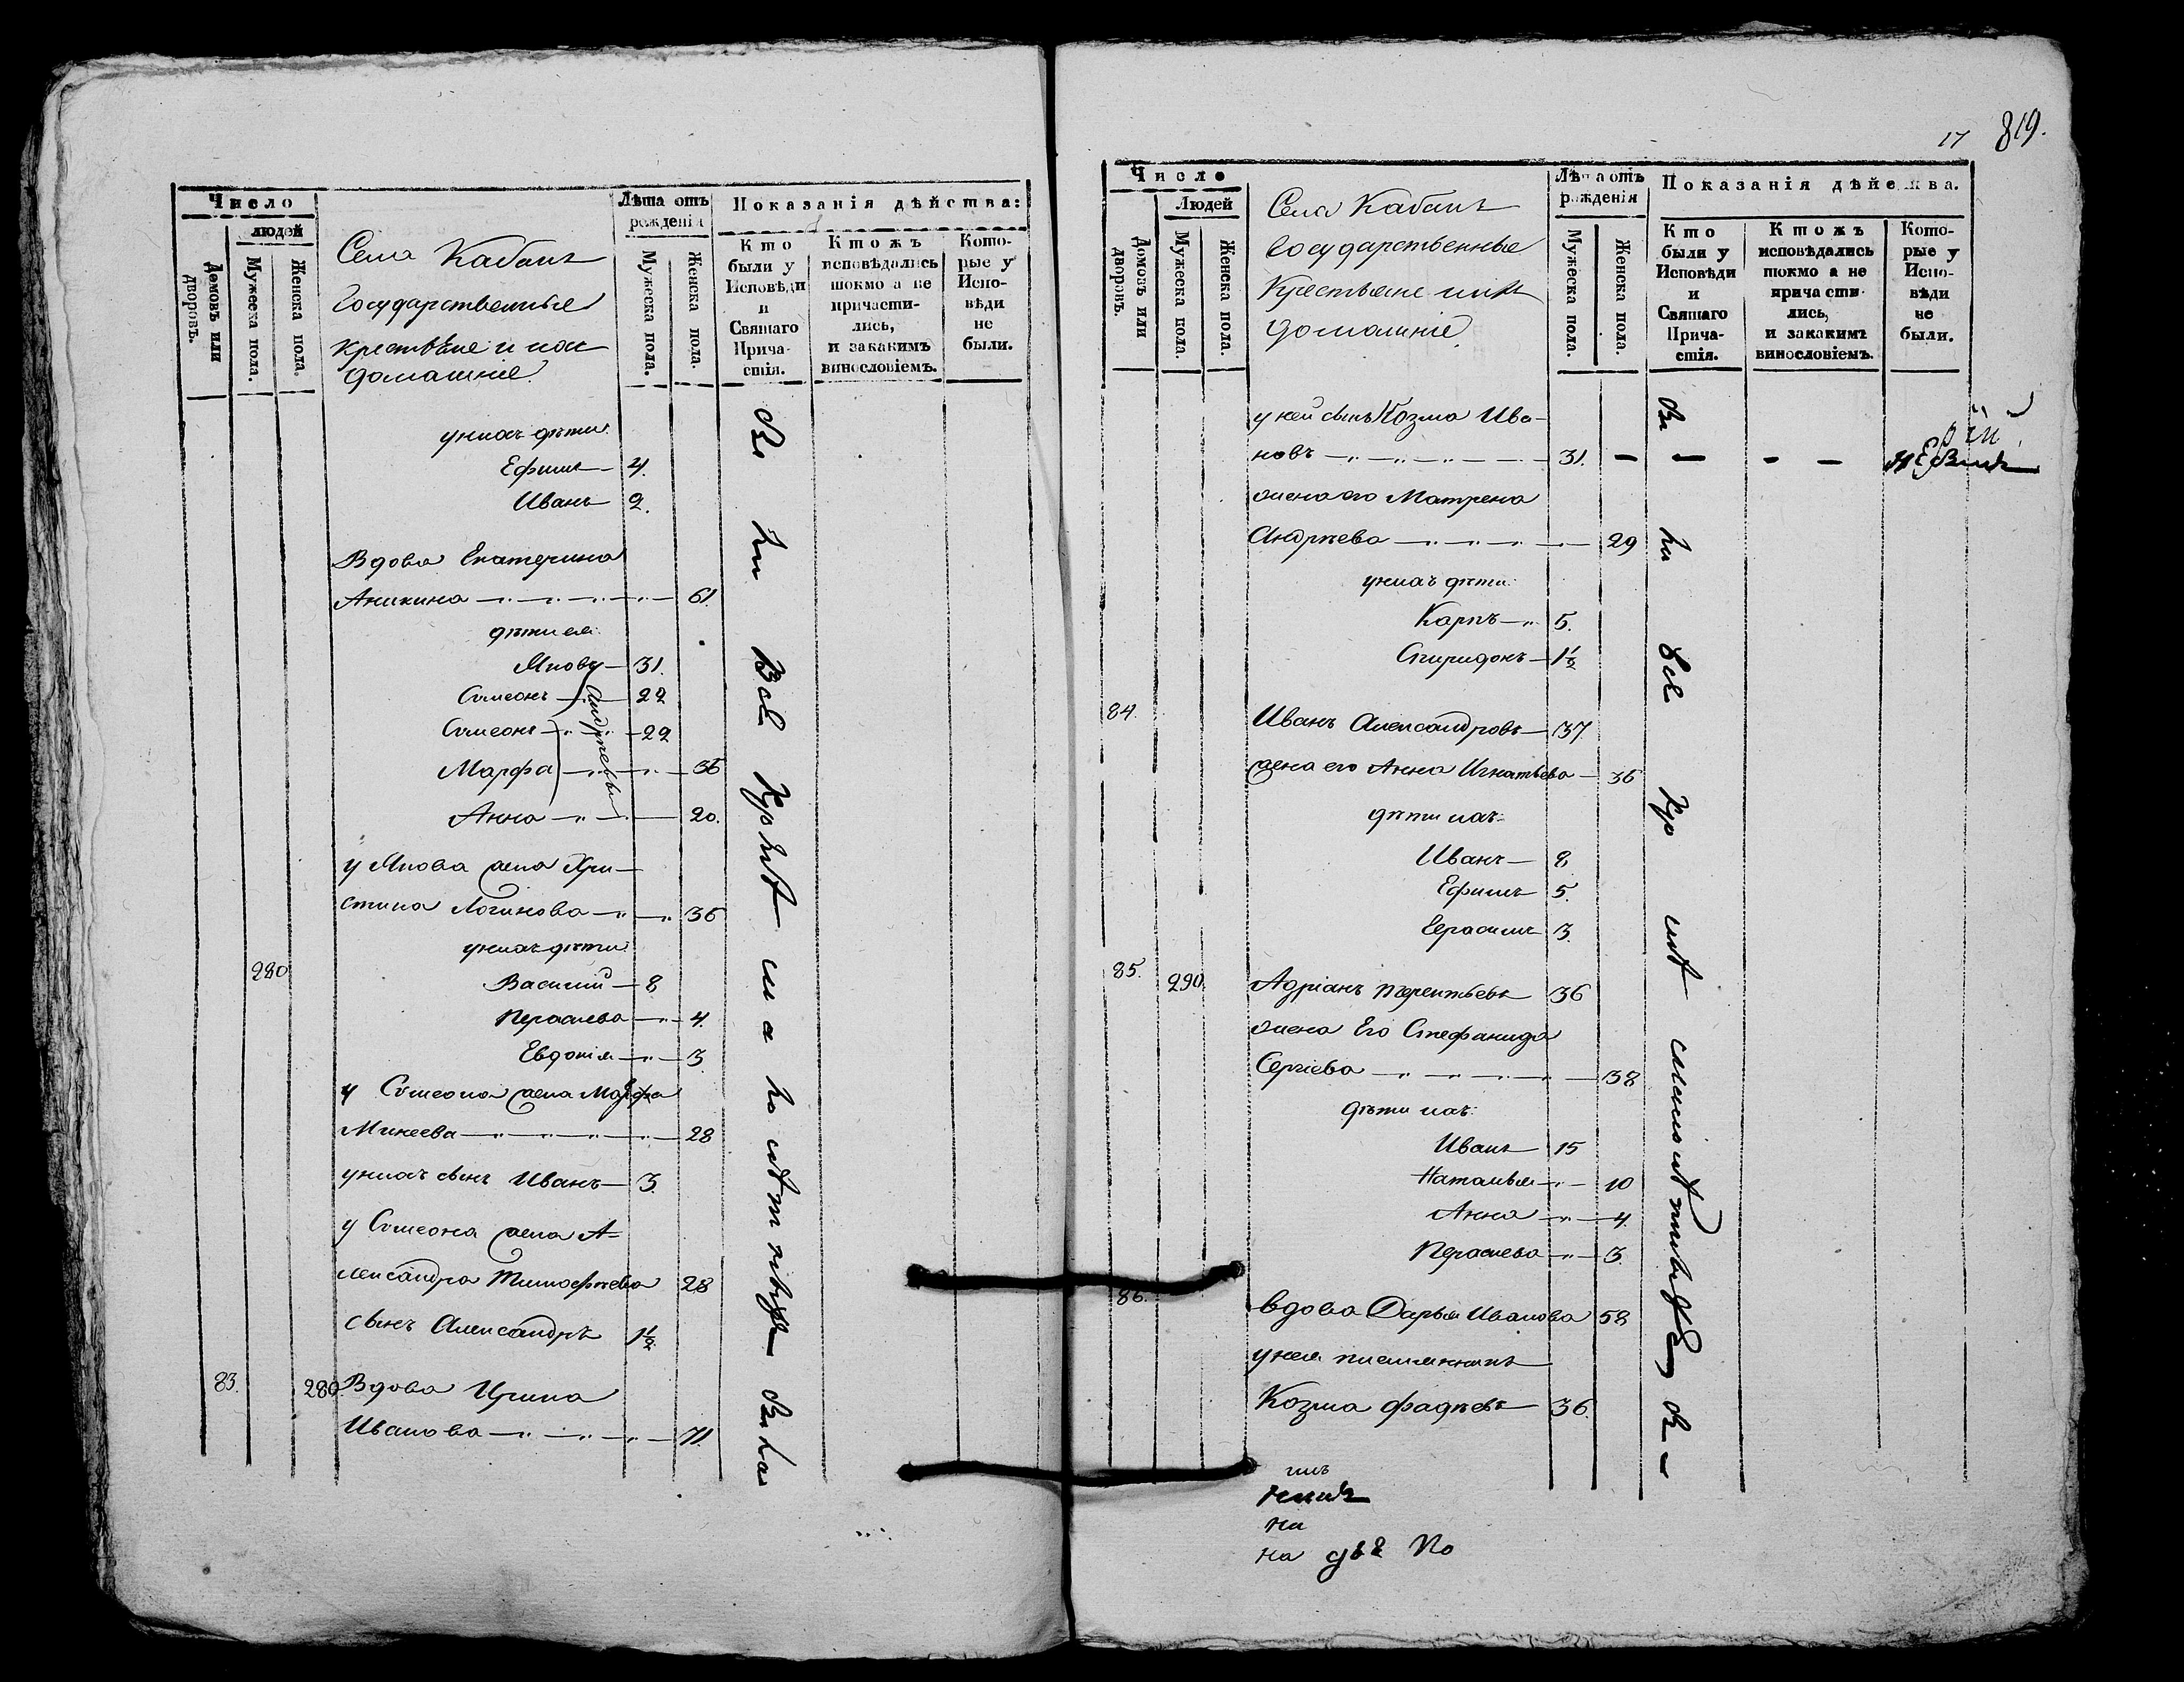 Число
людей
Домовъ или дворовъ.
Мужеска пола.
Женска пола.
Села Кабанъ
Государственные
крестьяне и ихъ
домашніе.
Лѣта отъ
рожденія
Мужеска пола.
Женска пола.
Показанія дѣйства:
Кто
были у
Исповѣди
и
Святаго
Прича-
стія.
Ктожъ
исповѣдались
токмо а не
причасти-
лись,
и закакимъ
винословіемъ.
Кото-
рые у
Испо-
вѣди
не
были.
у нихъ дѣти:
Ефимъ 4.
Иванъ 2.
Вдова Екатерина
Аникина 61.
дѣти ея:
Яковъ 31.
Симеонъ 22
Симеонъ 22
Марфа 36
Анна 20.
Андреевы
у Якова жена Хри-
стина Логинова 36
у нихъ дѣти
280 Василий 8
Парасиева 4.
Евдокія 3
у Симеона жена Марфа
Минеева 28
у нихъ сынъ Иванъ 3.
у Симеона жена А-
лександра Тимофѣева 28
сынъ Александръ 1½
83. 280. Вдова Ирина
Иванова 71.
17 819.
Число
Людей
Домовъ или дворовъ.
Мужеска пола.
Женска пола.
Села Кабанъ
Государственные
Крестьяне и ихъ
домашніе
Лѣта отъ
рожденія
Мужеска пола.
Женска пола.
Показанія дѣйства.
Кто
были у
Исповѣди
и
Святаго
Прича-
стія.
Ктожъ
исповѣдались
токмо а не
причасти-
лись,
и закакимъ
винословіемъ.
Кото-
рые у
Испо-
вѣди
не
были.
у ней сынъ Козма Ива-
новъ 31.
жена его Матрена
Андрѣева 29
у нихъ дѣти:
Карпъ 5.
Спиридонъ 1½
84. Иванъ Александровъ 37.
жена его Анна Игнатьева 36
дѣти ихъ:
Иванъ 8
Ефимъ 5.
Герасимъ 3.
85. 290. Адріанъ Терентьевъ 36
жена Его Стефанида
Сергіева 38
дѣти ихъ:
Иванъ 15
Наталья 10
Анна 4.
Парасиева 3.
86. вдова Дарья Иванова 58
у нея племянникъ
Козма Фадѣевъ 36.
на
на двѣ По